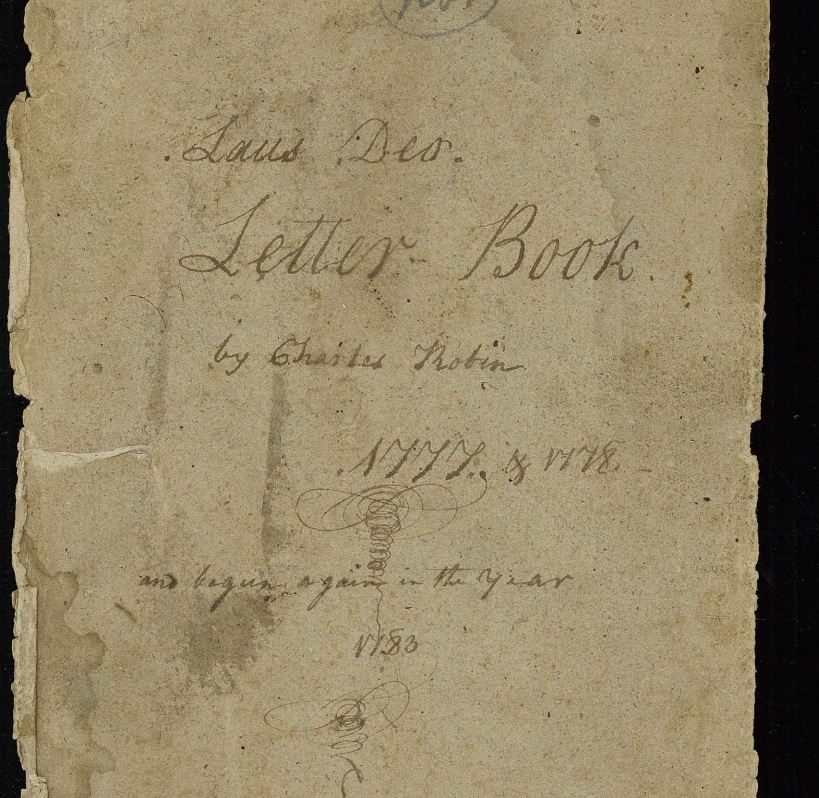 . Laus Deo.
Letter Book.
by Charles Robin
. 1777. & 1778 –
and begun again in the Year
1783